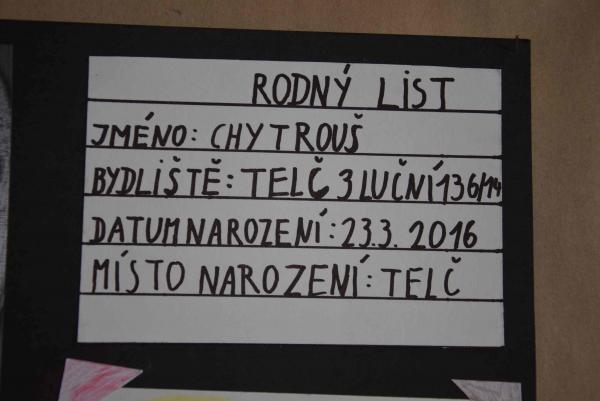 RODNÝ LIST
JMÉNO: CHYTROUŠ
BYDLIŠTĚ: TELČ 3 LUČNÍ 136/14
DATUM NAROZENÍ: 23.3. 2016
MÍSTO NAROZENÍ: TELČ